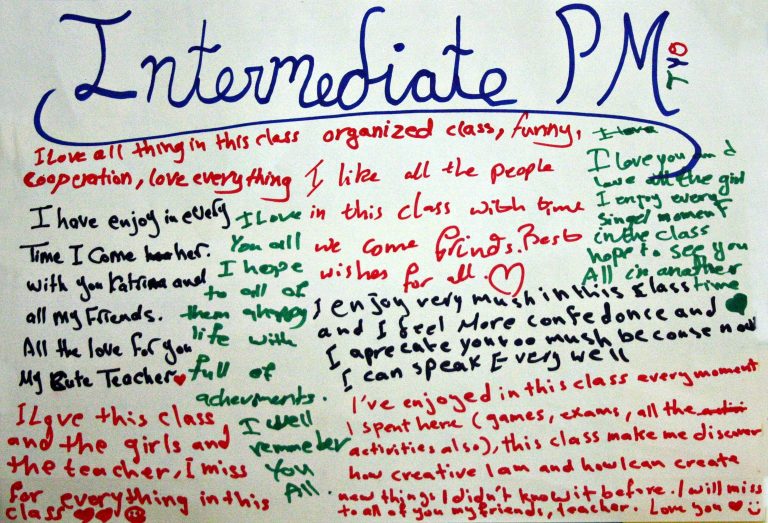 Intermediate PM
TYO
I Love all thing in this class organized class, funny,
Cooperation, love everything
I like all the people
in this class with time
we come frinds. Best
wishes for all.
I love
I love you and
love all the girl
I enjoy every
singel moment
in the class
hope to see you
All in another
time
I have enjoy in every
Time I Come
with you Katrina and
all my Friends.
All the love for you
My Cute Teacher
I Love
You all
I hope
to all of
them a happy
life with
full of
achevments.
I well
remmeber
You
All.
I enjoy very mush in this class
and I feel More confedonce and
I aprecate you too mush because now
I can speak E very well
I Love this class
and the girls and
the teacher, I miss
for everything in this
class
I've enjoyed in this class every moment
I spent here (games, exams, all the
activities also), this class make me discover
how creative I am and how I can create
new things I didn't know it before. I will miss
to all of you my friends, teacher. Love you